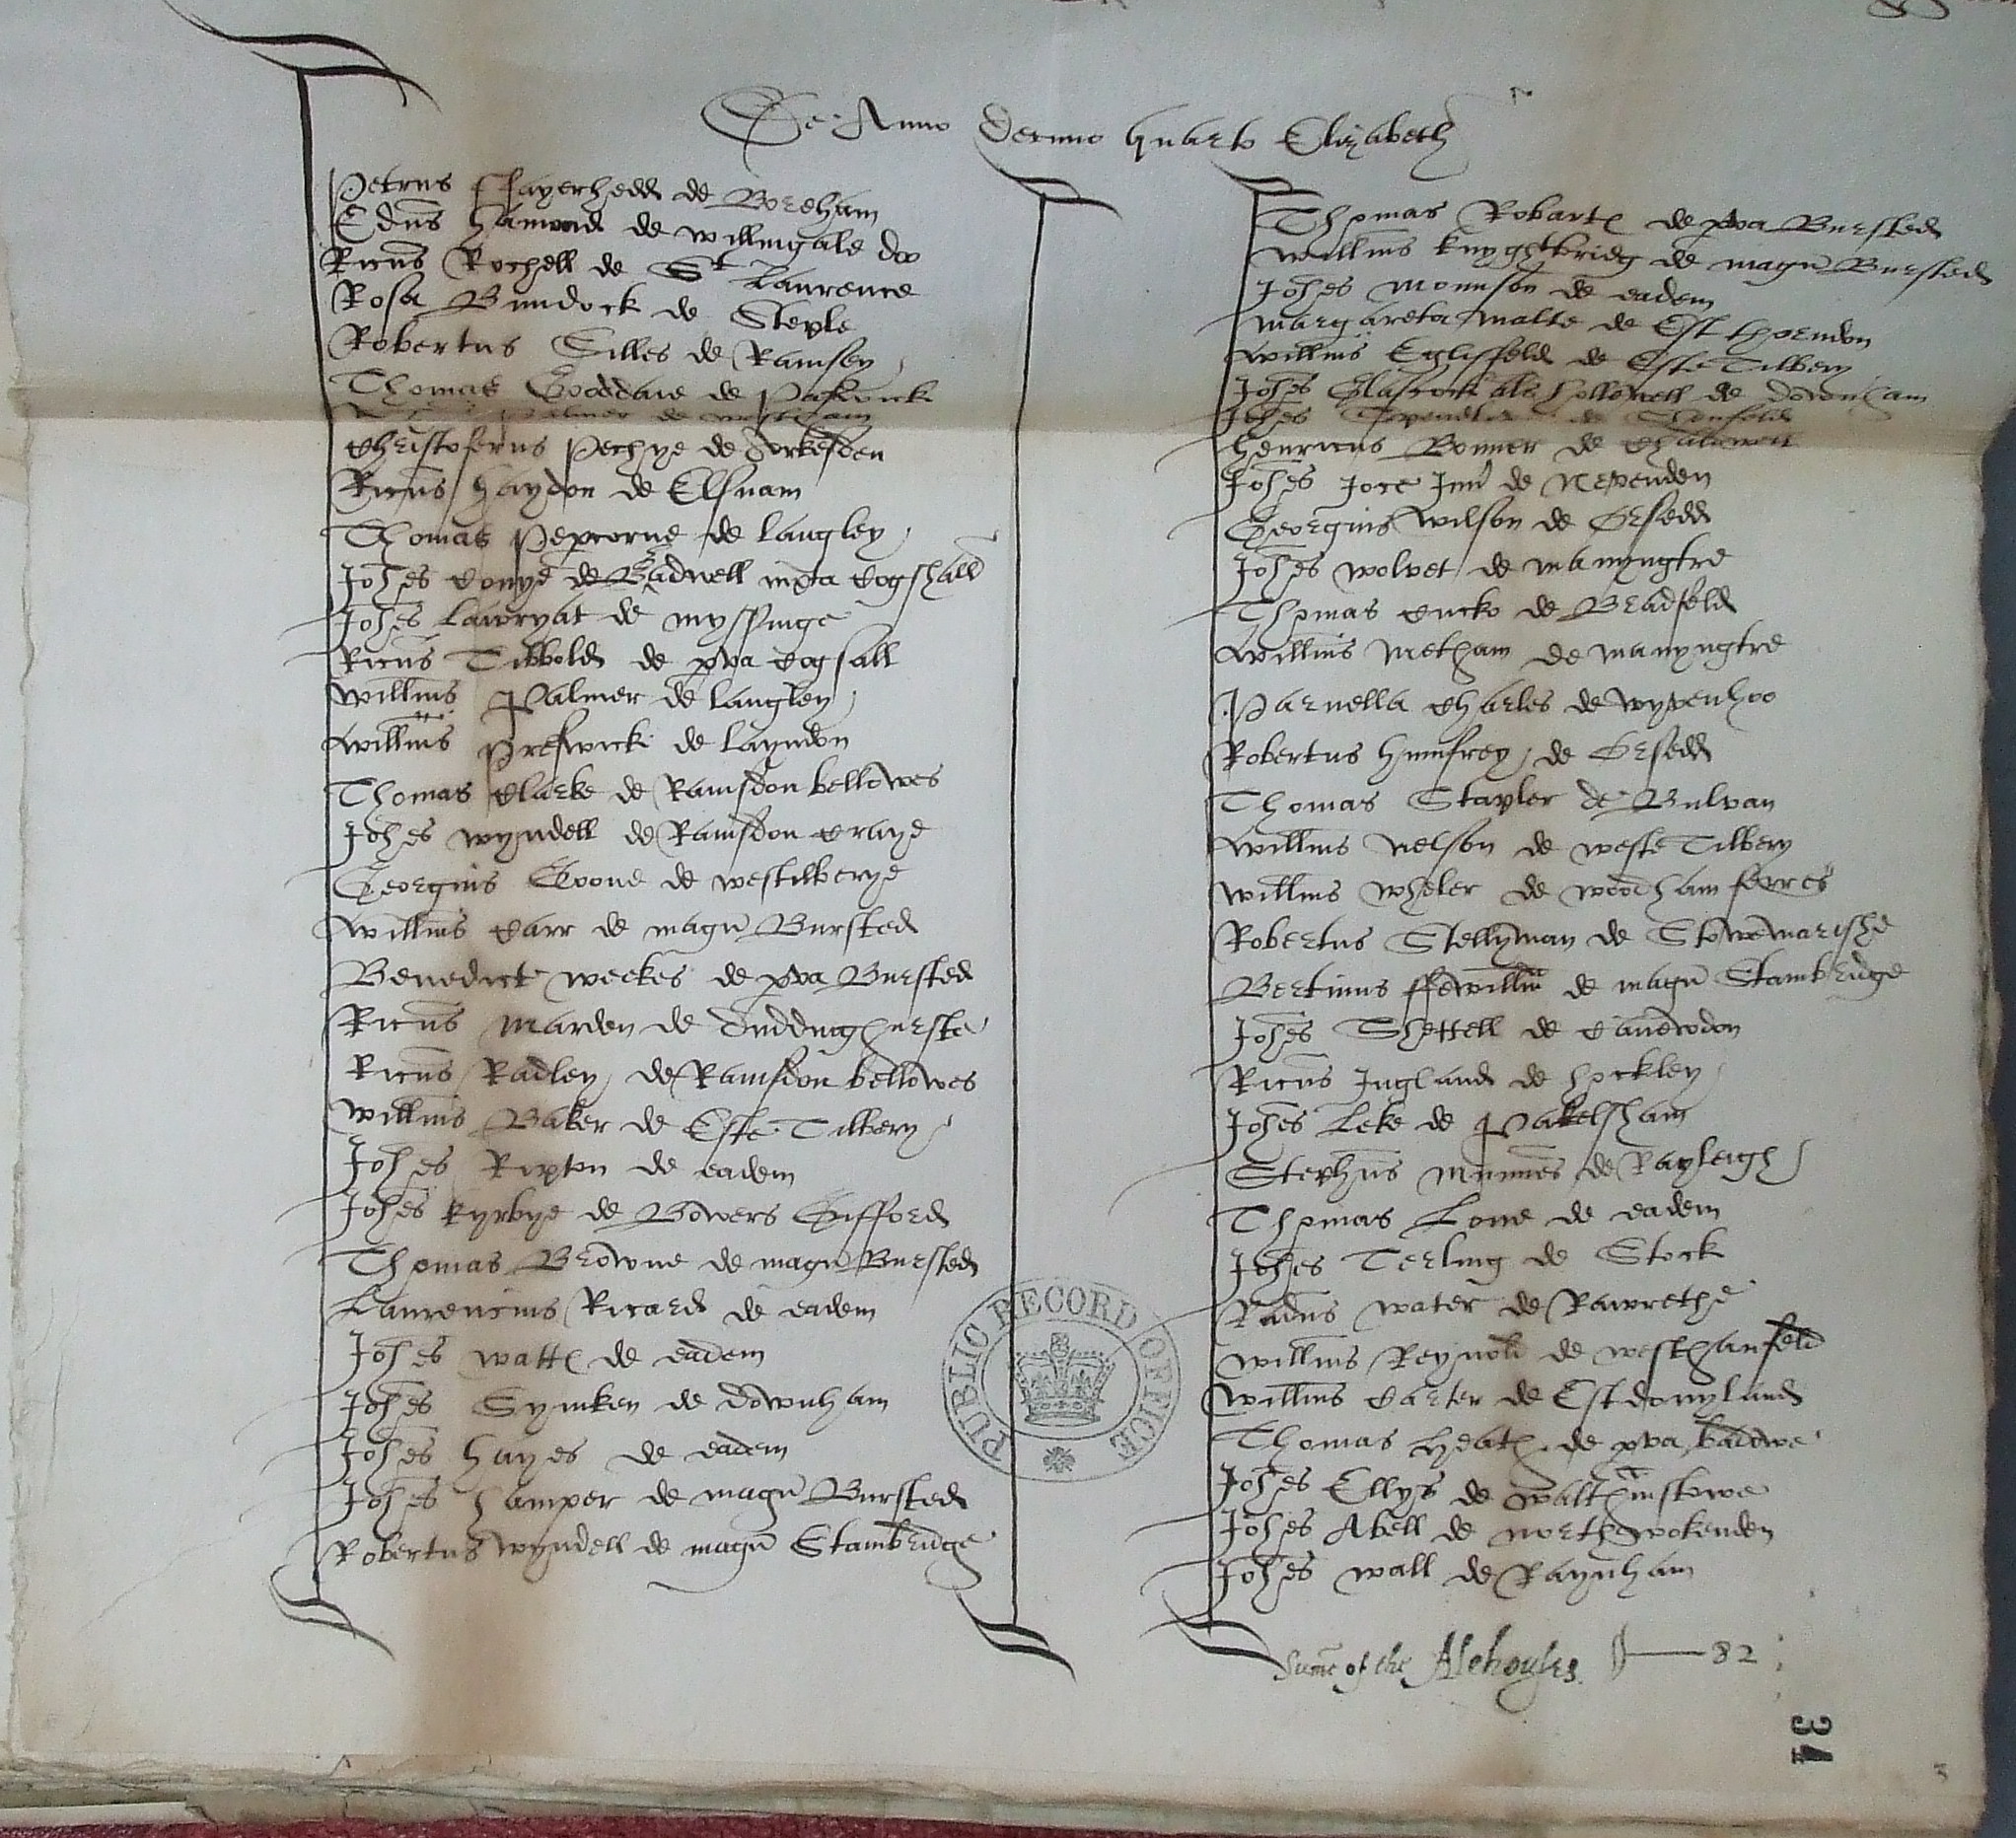 De Anno decimo quarto Elizabeth
Petrus Clayerhedd de Boreham
Edus Hamond de Willingale doo
Ricus Rochell de St Laurence
Rosa Bundock de Steple
Robertus Gilles de Ramsey
Thomas Goddane de
Palmer de
Christoferus Pechye de Yorkesden
Ricus Haydon de Elsnam
Thomas Pepcorne de Langley
Johes Conye de Bradwell iuxta Cogshall
Johes Lawryat de Myssinge
Ricus Tibbold de pva Cogsall
Willms Palmer de Langley
Willms Preswick de Layndon
Thomas Clarke de Ramsdon bellowes
Johes Wyndell de Ramsdon Craye
Georgius Goone de Westilberye
Willms Carr de magn Bursted
Benedict Weekes de pva Bursted
Ricus Marden de Duddinghurste
Ricus Radley de Ramsdon bellowes
Willms Baker de Este Tilbery
Johes Ripton de eadem
Johes Kyrbye de Bowers Gifford
Thomas Browne de magn Bursted
Laurencius Ricard de eadem
Johes Watts de eadem
Johes Symken de Downham
Johes Hayes de eadem
Johes Hamper de magn Bursted
Robertus Wyndell de magn Stambridge
Thomas Robarts de pva Bursted
Willms Knyghtbridg de magn Bursted
Johes Mounson de eadem
Margareta Malte de Est Thorndon
Willms Eglisfeld de Este Tilbery
Johes Glascock als Hollowell de Downham
Johes de
Henricus Bonner de Chaldwell
Johes Joce Junr de Nevenden
Georgius Wilson de Orsedd
Johes Wolvet de Manyngtre
Thomas Cucko de Bradfeld
Willms Metham de Manyngtre
Parnella Charles de Wyvenhoo
Robertus Humfrey de Orsedd
Thomas Stapler de Bulvan
Willms Nelson de Weste Tilbery
Willms Wheler de Woodham ferres
Robertus Stellyman de Stowemarishe
Bertinus ffewillm de magn Stambridge
Johes Shettell de Canewdon
Ricus Ingland de Hockley
Johes Leke de Pakelsham
Stephus Munnes de Rayleigh
Thomas Lone de eadem
Johes Terling de Stock
Radus Water de Rawrethe
Willms Reynold de Westhanfeld
Willms Carter de Estdonyland
Thomas Heath de pva badowe
Johes Ellys de Walthmstowe
Johes Abell de Northwokenden
Johes Wall de Raynham
Sume of the Alehouses 82
PUBLIC RECORD OFFICE
34